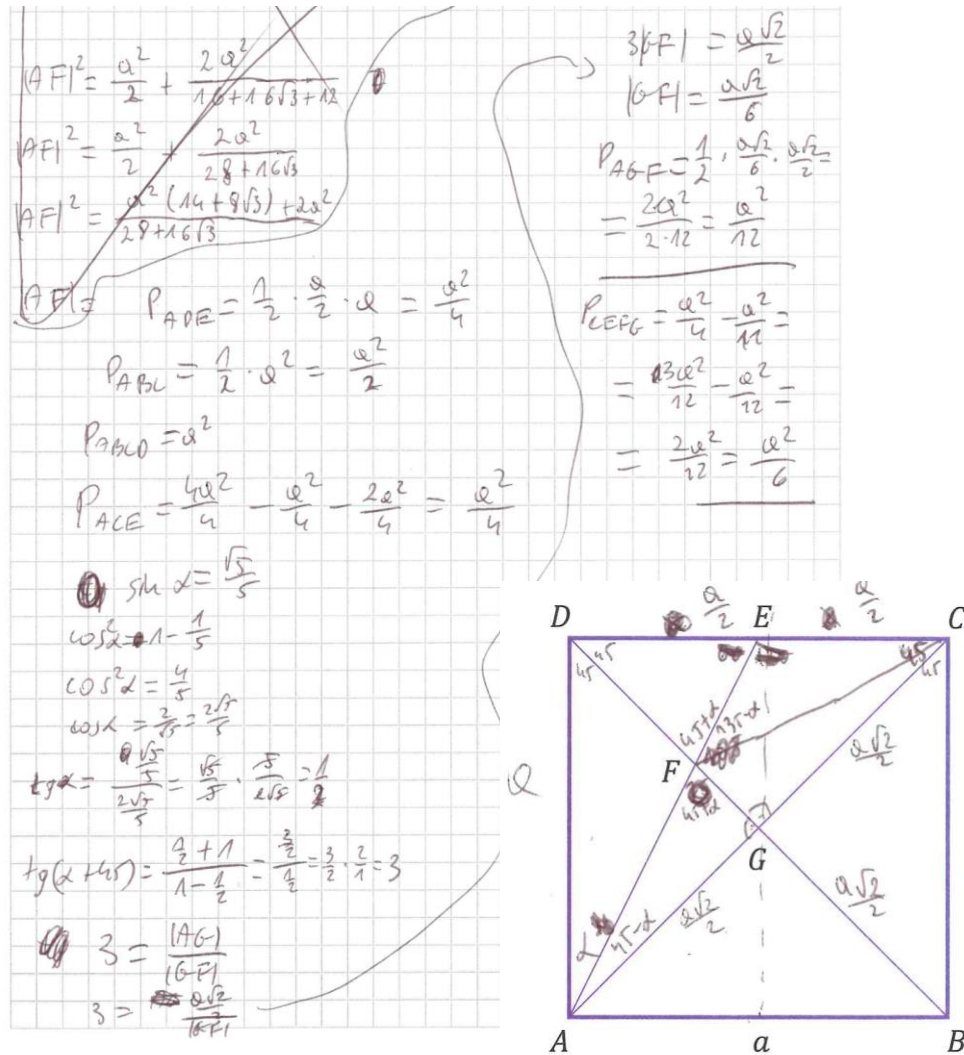 |AF|² = a²/2 + 2a²/(16+16√3+12)
|AF|² = a²/2 + 2a²/(28+16√3)
|AF|² = (a²(14+8√3)+2a²)/(28+16√3)
|AF| =
P_ADE = 1/2 · a/2 · a = a²/4
P_ABC = 1/2 · a² = a²/2
P_ABCD = a²
P_ACE = 4a²/4 - a²/4 - 2a²/4 = a²/4
sin α = √5/5
cos²α = 1 - 1/5
cos²α = 4/5
cos α = 2/√5 = 2√5/5
tg α = (√5/5)/(2√5/5) = √5/5 · 5/2√5 = 1/2
tg(α+45) = (1/2+1)/(1-1/2) = (3/2)/(1/2) = 3/2 · 2/1 = 3
3 = |AG|/|GF|
3 = (a√2/2)/|GF|
3|GF| = a√2/2
|GF| = a√2/6
P_AGF = 1/2 · a√2/6 · a√2/2 =
= 2a²/(2·12) = a²/12
P_CEFG = a²/4 - a²/12 =
= 3a²/12 - a²/12 =
= 2a²/12 = a²/6
a/2 a/2
D E C
45 45 45
45
45+α 135-α
F
45+α
a√2/2
a
G
α 45-α a√2/2 a√2/2
A a B